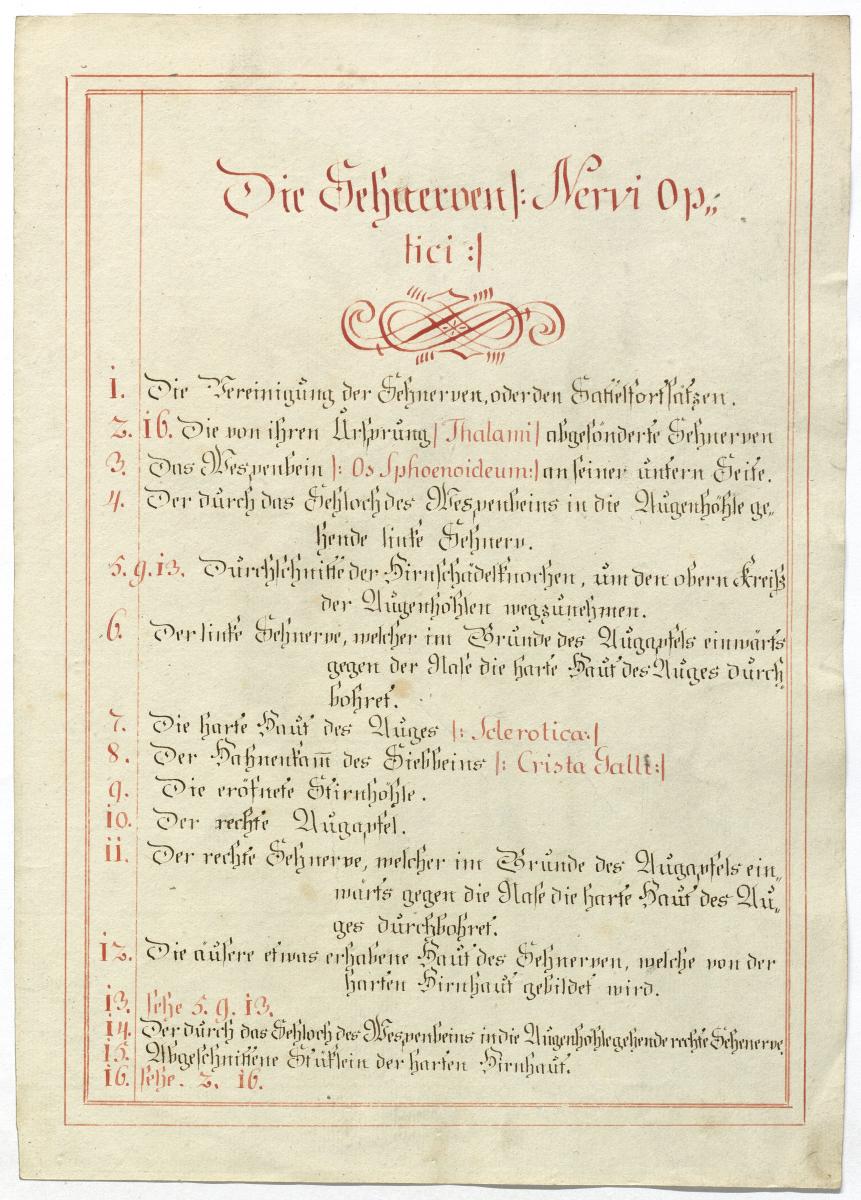 Die Sehnerven |: Nervi Op„
tici :|
1. Die Vereinigung der Sehnerven, oder den Sattelfortsätzen.
2. 16. Die von ihren Ursprung | Thalami | abgesönderte Sehnerven
3. Das Wespenbein |: Os Sphoenoideum :| an seiner untern Seite.
4. Der durch das Sehloch des Wespenbeins in die Augenhöhle ge„
hende linke Sehnerv.
5. 9. 13. Durchschnitte der Hirnschädelknochen, um den obern Kreiß
der Augenhöhlen wegzunehmen.
6. Der linke Sehnerve, welcher im Grunde des Augapfels einwärts
gegen der Nase die harte Haut des Auges durch„
bohret.
7. Die harte Haut des Auges |: Sclerotica :|
8. Der Hahnenkam̅ des Siebbeins |: Crista Galli :|
9. Die eröfnete Stirnhöhle.
10. Der rechte Augapfel.
11. Der rechte Sehnerve, welcher im Grunde des Augapfels ein„
wärts gegen die Nase die harte Haut des Au„
ges durchbohret.
12. Die äusere etwas erhabene Haut des Sehnerven, welche von der
harten Hirnhaut gebildet wird.
13. sehe 5. 9. 13.
14. Der durch das Sehloch des Wespenbeins in die Augenhöhle gehende rechte Sehenerve.
15. Abgeschnittene Stüklein der harten Hirnhaut.
16. sehe. 2. 16.